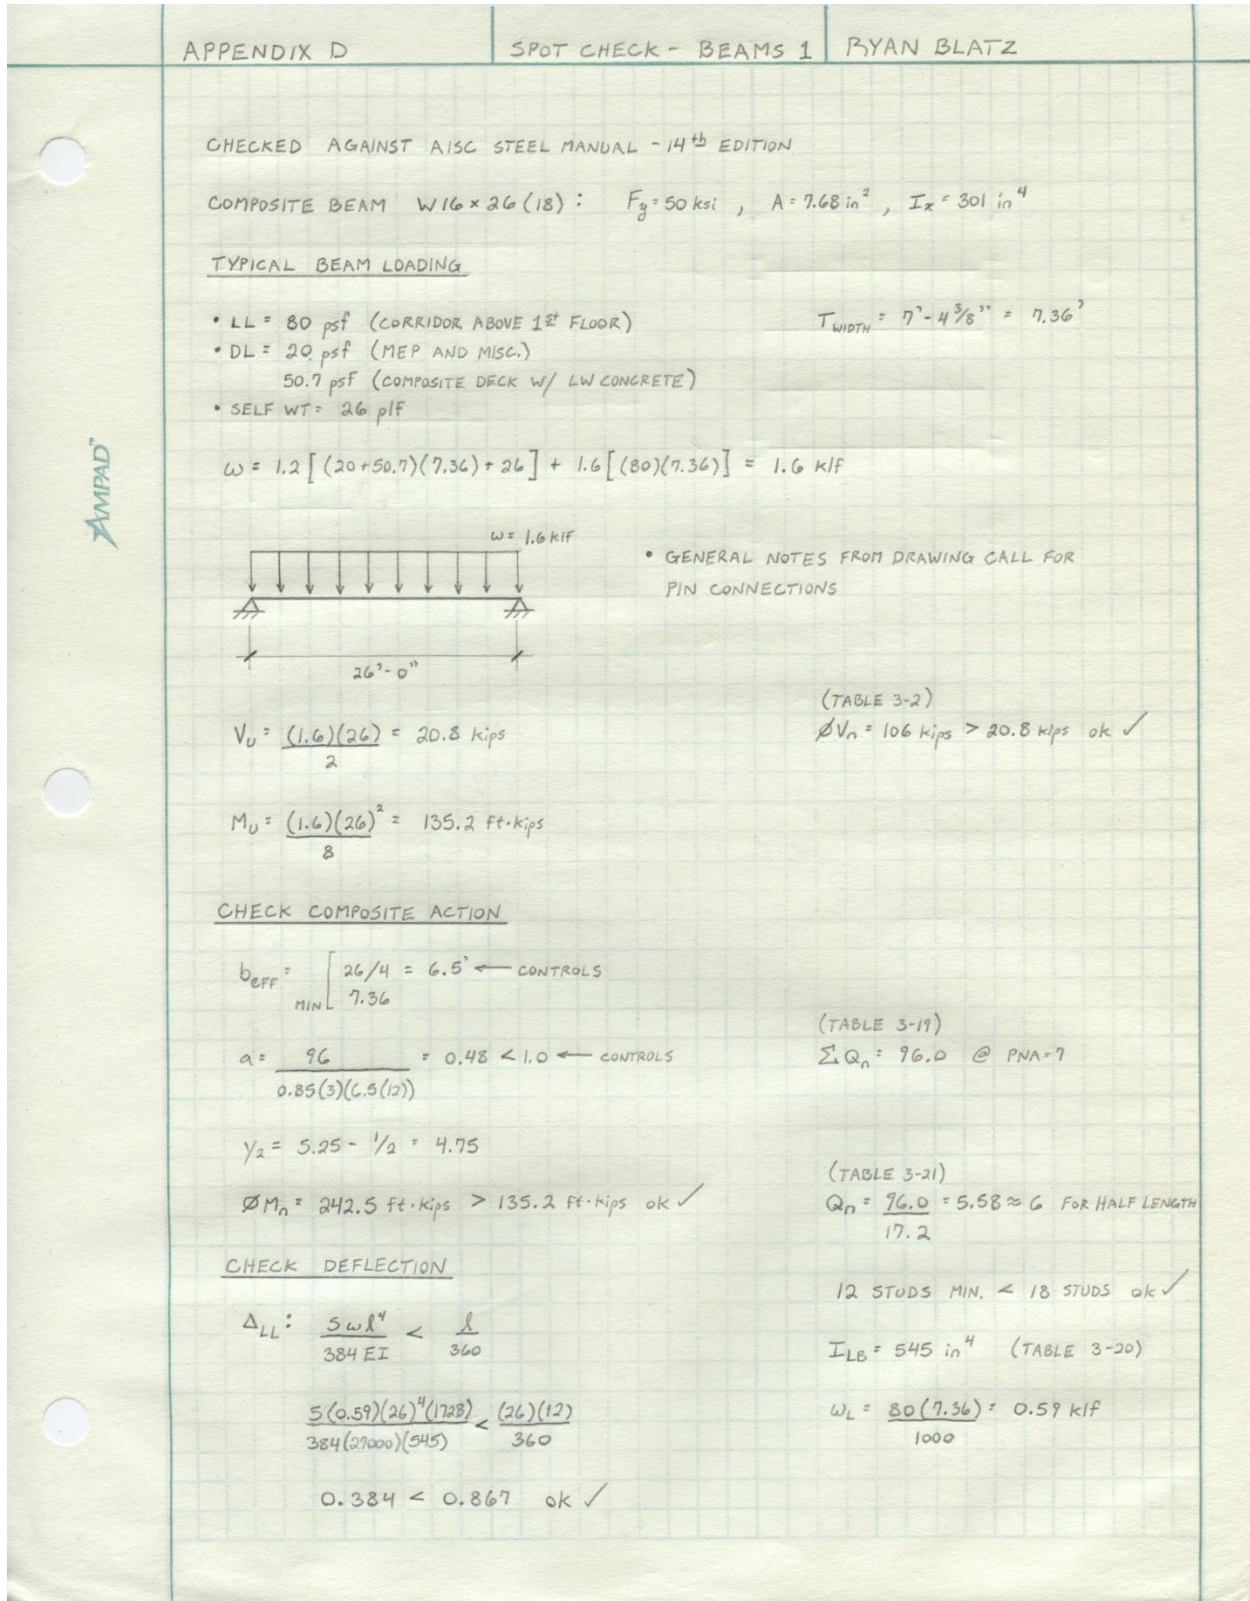 APPENDIX D SPOT CHECK - BEAMS 1 RYAN BLATZ
CHECKED AGAINST AISC STEEL MANUAL - 14th EDITION
COMPOSITE BEAM W16 × 26 (18) : Fy = 50 ksi , A = 7.68 in² , Ix = 301 in⁴
TYPICAL BEAM LOADING
• LL = 80 psf (CORRIDOR ABOVE 1st FLOOR) TWIDTH = 7'-4 3/8" = 7.36'
• DL = 20 psf (MEP AND MISC.)
50.7 psf (COMPOSITE DECK W/ LW CONCRETE)
• SELF WT = 26 plf
AMPAD™
ω = 1.2 [ (20+50.7)(7.36) + 26 ] + 1.6 [ (80)(7.36) ] = 1.6 klf
ω = 1.6 klf
• GENERAL NOTES FROM DRAWING CALL FOR
PIN CONNECTIONS
26'-0"
(TABLE 3-2)
Vu = (1.6)(26) / 2 = 20.8 kips ØVn = 106 kips > 20.8 kips ok ✓
Mu = (1.6)(26)² / 8 = 135.2 ft·kips
CHECK COMPOSITE ACTION
bEFF = MIN [ 26/4 = 6.5' ← CONTROLS
7.36
(TABLE 3-19)
a = 96 / 0.85(3)(6.5(12)) = 0.48 < 1.0 ← CONTROLS ΣQn = 96.0 @ PNA=7
Y2 = 5.25 - 1/2 = 4.75
(TABLE 3-21)
ØMn = 242.5 ft·kips > 135.2 ft·kips ok ✓ Qn = 96.0 / 17.2 = 5.58 ≈ 6 FOR HALF LENGTH
CHECK DEFLECTION
12 STUDS MIN. < 18 STUDS ok ✓
ΔLL : 5ωl⁴ / 384 EI < l / 360 ILB = 545 in⁴ (TABLE 3-20)
5(0.59)(26)⁴(1728) / 384(29000)(545) < (26)(12) / 360 ωL = 80(7.36) / 1000 = 0.59 klf
0.384 < 0.867 ok ✓